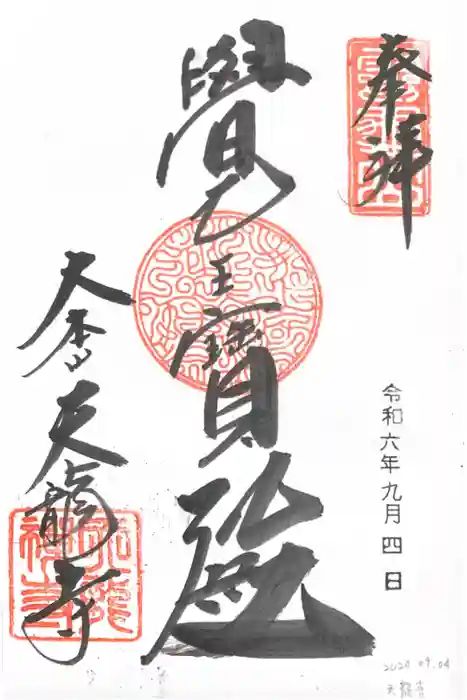 奉拝
覺王寶殿
令和六年九月四日
大本山天龍寺
2024 09.04
天龍寺